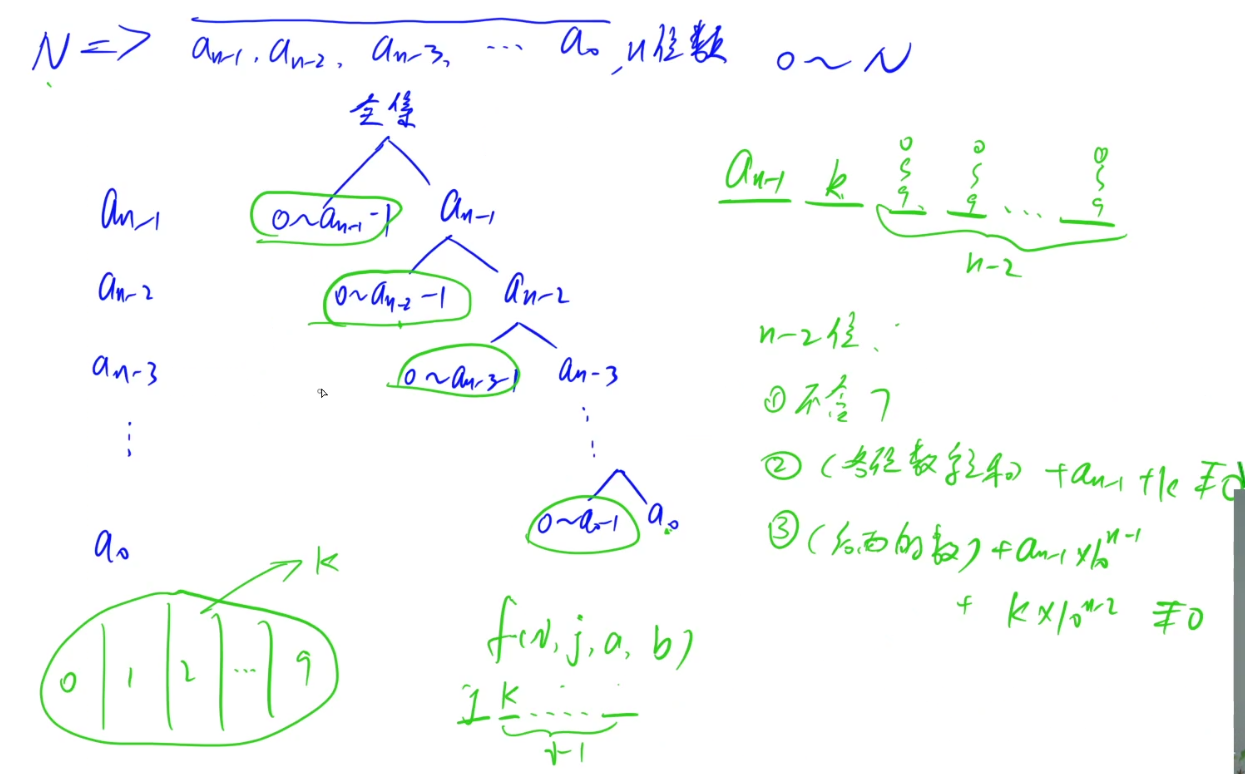 N => a_{n-1}, a_{n-2}, a_{n-3}, ... a_0, n位数 0~N
全集
a_{n-1} 0~a_{n-1}-1 a_{n-1}
a_{n-2} 0~a_{n-2}-1 a_{n-2}
a_{n-3} 0~a_{n-3}-1 a_{n-3}
⋮ ⋮
a_0 0~a_0-1 a_0
k
0 1 2 ... 9
f(N, j, a, b)
j k ......
a_{n-1} k 0~9 0~9 ... 0~9
n-2
n-2位:
① 不含7
② (各位数字之和) + a_{n-1} + k ≢ 0
③ (后面的数) + a_{n-1}×10^{n-1}
+ k×10^{n-2} ≢ 0